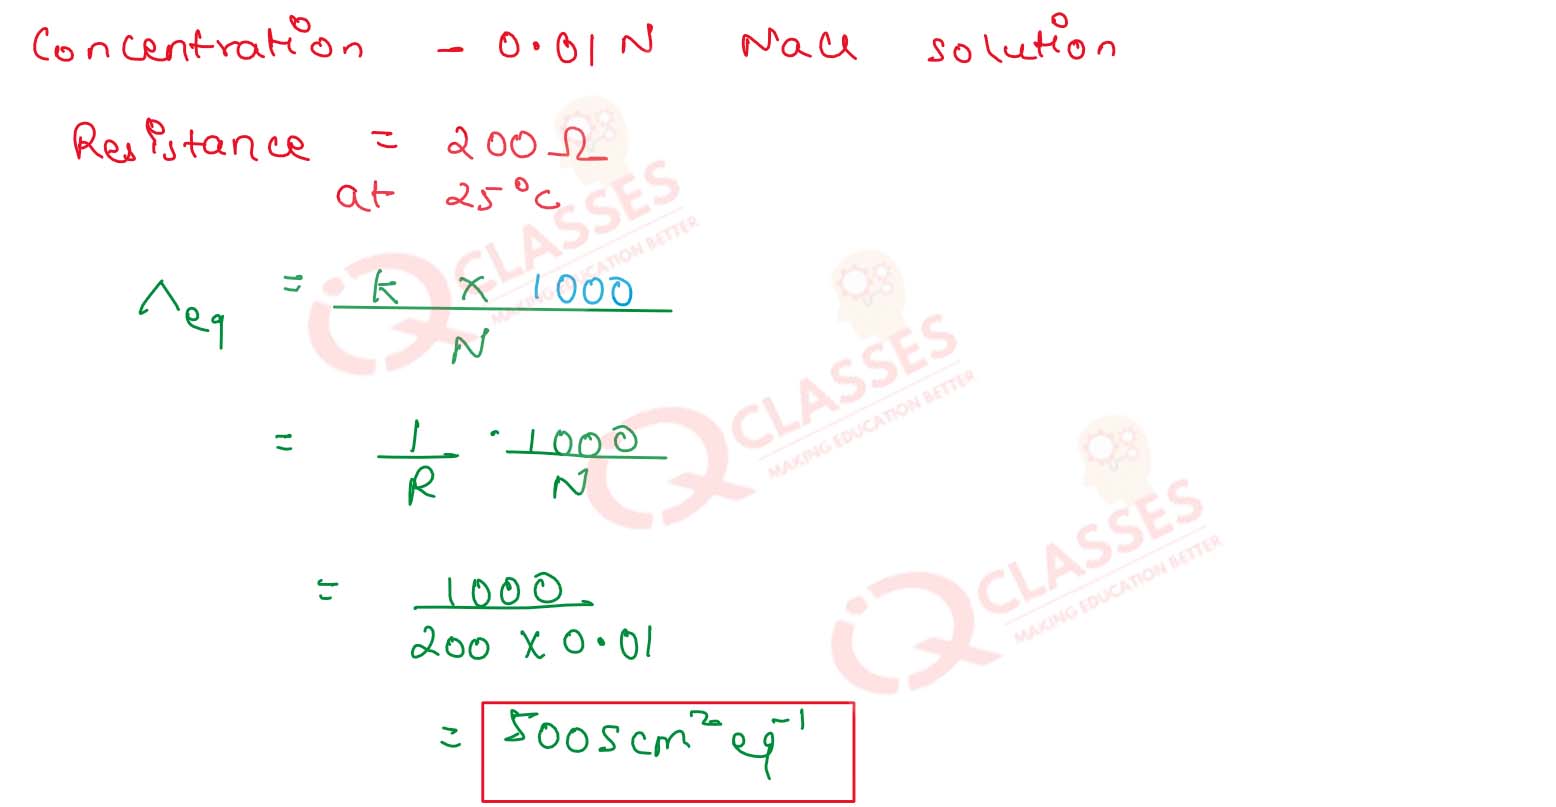 Concentration - 0.01 N NaCl solution
Resistance = 200 Ω
at 25°C
Λeq = k x 1000 / N
= 1/R · 1000/N
= 1000 / 200 x 0.01
= 500 S cm² eq⁻¹
iQ CLASSES
MAKING EDUCATION BETTER
iQ CLASSES
MAKING EDUCATION BETTER
iQ CLASSES
MAKING EDUCATION BETTER